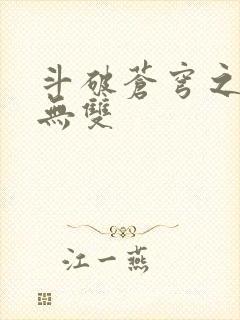 斗破蒼穹之
無雙
江一燕